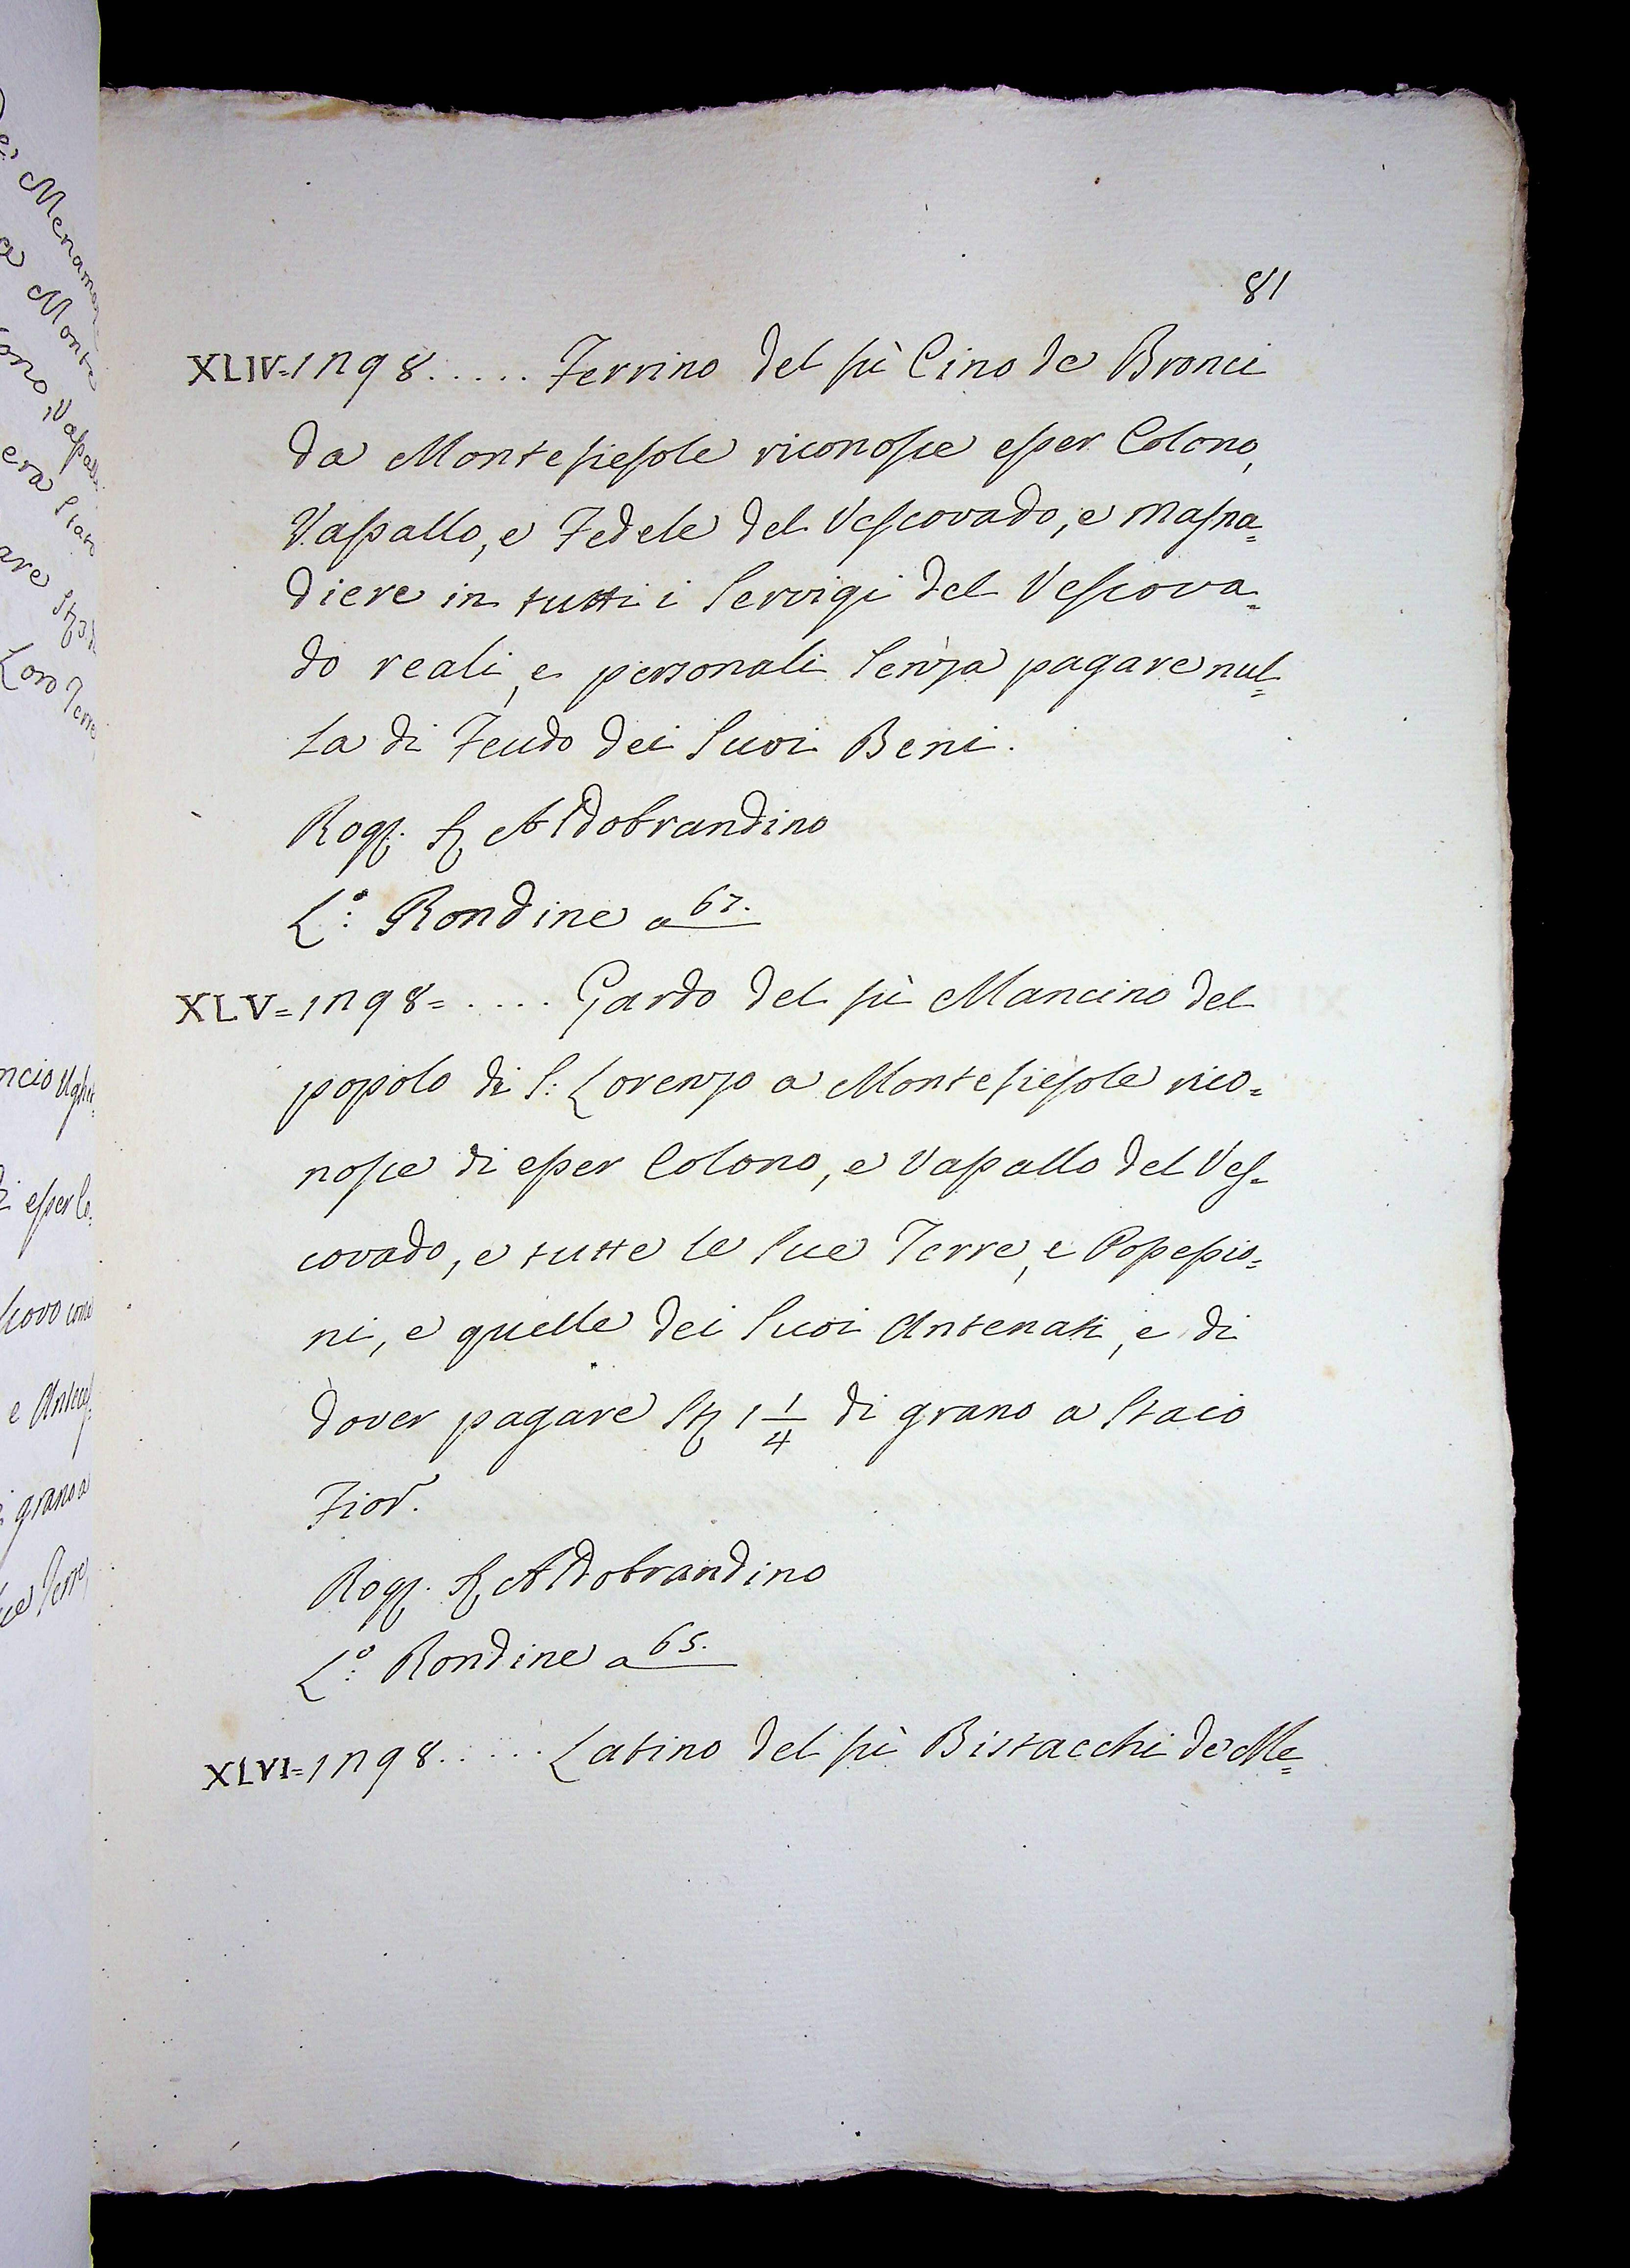 81
XLIV=1298..... Ferrino del fù Cino de Bronci
da Montefiesole riconosce esser Colono,
Vassallo, e Fedele del Vescovado, e Masna=
diere in tutti i Servigi del Vescova=
do reali, e personali senza pagare nul=
la di Feudo dei Suoi Beni.
Rog. S. Aldobrandino
L.º: Rondine a 67.
XLV=1298=.... Gardo del fù Mancino del
popolo di S: Lorenzo a Montefiesole rico=
nosce di esser Colono, e Vassallo del Ves=
covado, e tutte le Sue Terre, e Possessio=
ni, e quelle dei Suoi Antenati, e di
dover pagare St. 1 1/4 di grano a Staio
Fior.
Rog. S. Aldobrandino
L.º: Rondine a 65.
XLVI=1298..... Latino del fù Bistacchi de' Me=